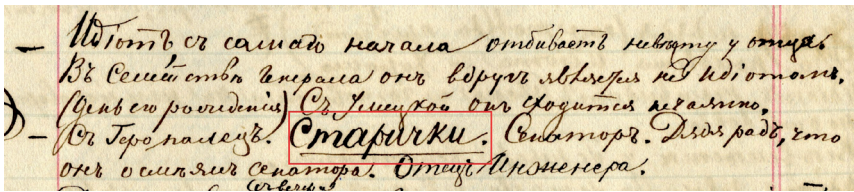 – Идіотъ съ самаго начала отбиваетъ невѣсту у отца
Въ Семействѣ Генерала онъ вдругъ является не Идіотомъ.
(день его рожденія) Съ Умецкой онъ сходится нечаянно.
– Съ Геро палецъ. Старички. Сенаторъ. Дядя радъ, что
онъ осмѣялъ сенатора. Отецъ Инженера.